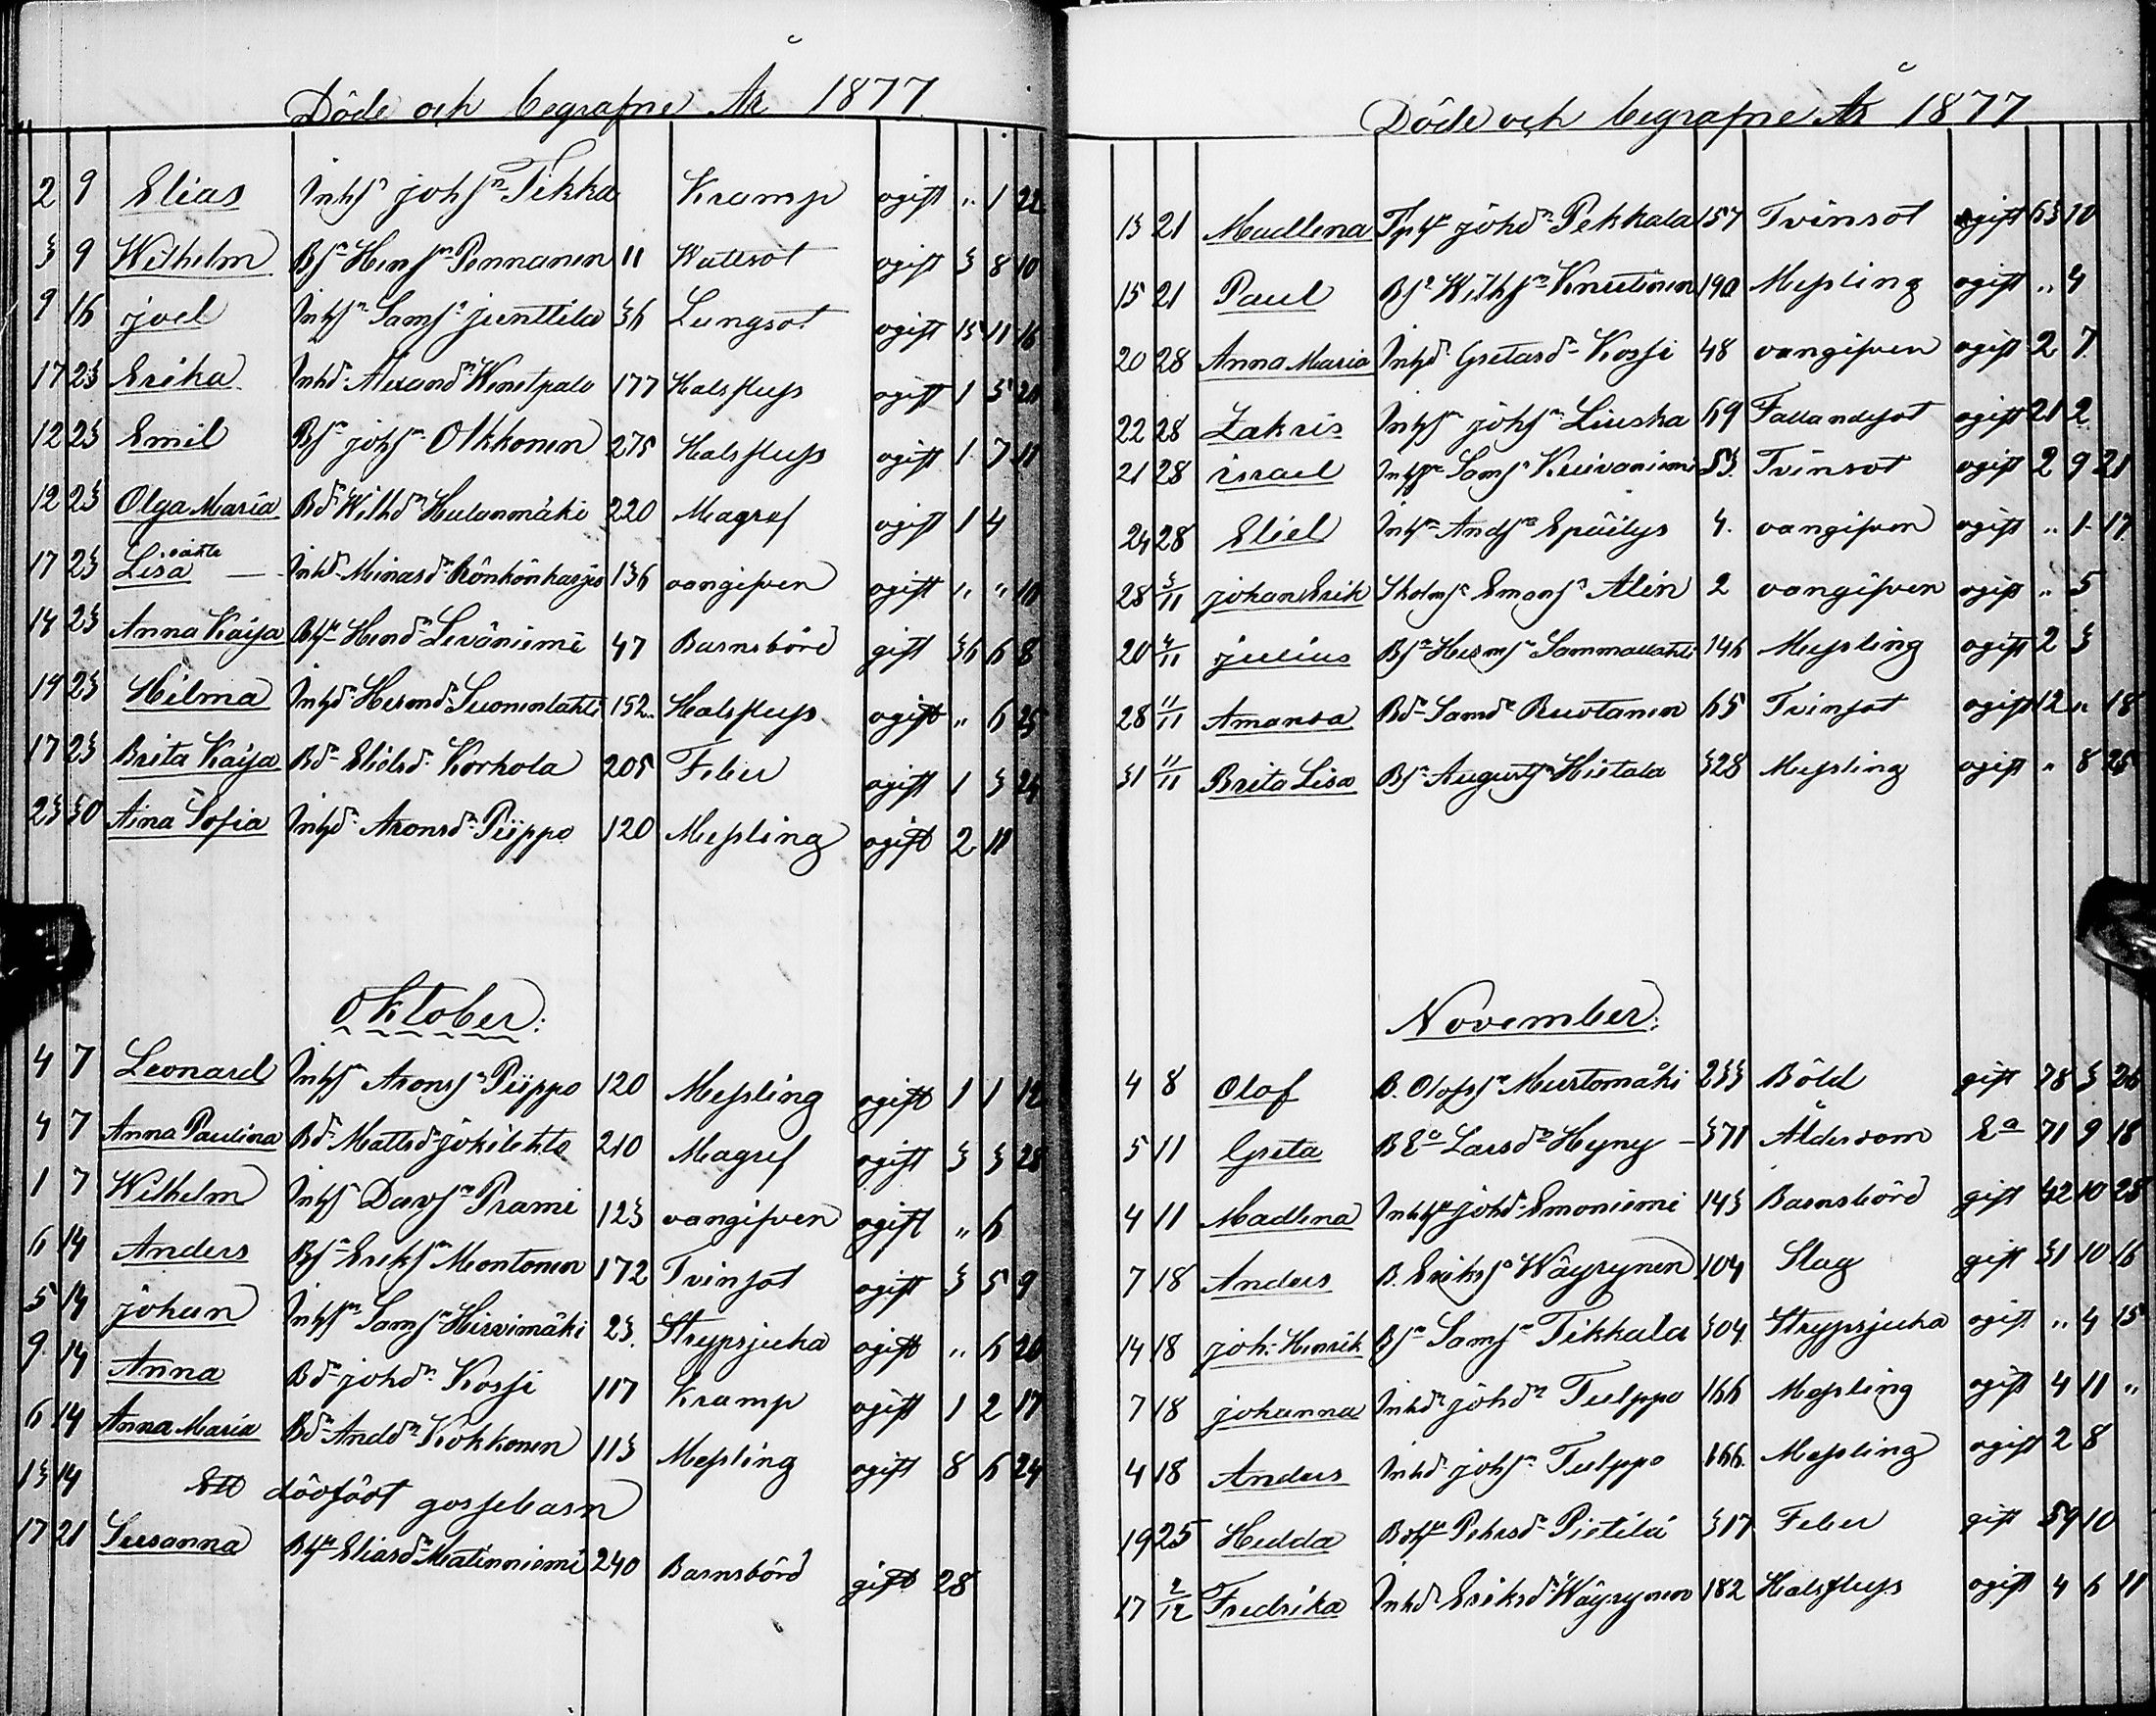 Döde och begrafne År 1877.
2 9 Elias Inhsn johsn Tikka Kramp ogift " 1 22
3 9 Wilhelm Bsn Hensn Pennanen 11 Watesot ogift 3 8 10
9 16 joel Inhsn Samsn junttila 36 Lungsot ogift 15 11 16
17 23 Erika Inhdr 177 Halsfluss ogift 1 5 21
12 23 Emil Bsn johsn Olkkonen 275 Halsfluss ogift 1 7 11
12 23 Olga Maria Bdr Wilhdr Hulanmäki 220 Magref ogift 1 4
17 23 Lisa oäkta — Inhdr Minasdr Rönkönharju 136 oangifven ogift " " 10
14 23 Anna Kaisa Hendr Leväniemi 47 Barnsbörd gift 36 6 8
19 23 Hilma Inhdr Hermdr Suomenlahti 152 Halsfluss ogift " 6 25
17 23 Brita Kaisa Bdr Elielsdr Korhola 205 Feber ogift 1 3 24
23 30 Aina Sofia Inhdr Aronsdr Piippo 120 Messling ogift 2 11
Oktober:
4 7 Leonard Inhsn Aronssn Piippo 120 Messling ogift 1 1 12
4 7 Anna Paulina Bdr Mattsdr jokilehto 210 Magref ogift 3 3 25
1 7 Wilhelm Inhsn Davsn Prami 123 oangifven ogift " 6
6 14 Anders Bsn Eriksn Montonen 172 Tvinsot ogift 3 5 9
5 14 johan Inhsn Samsn Hirvimäki 23. Strypsjuka ogift " 6 20
9 14 Anna Bdr johdr Kossi 117 Kramp ogift 1 2 17
6 14 Anna Maria Bdr Anddr Kokkonen 113 Messling ogift 8 6 24
13 14 Ett dödfödt gossebarn
17 21 Susanna Bhu Eliasdr Matinniemi 240 Barnsbörd gift 28
Döde och begrafne År 1877
13 21 Madlena johdr Pekkala 157 Tvinsot ogift 63 10
15 21 Paul Bsn Wilhsn Knutinen 190 Messling ogift " 4
20 28 Anna Maria Inhdr Gretasdr Kossi 48 oangifven ogift 2 7
22 28 Zakris Inhsn johsn Liuska 69 Fallandesot ogift 21 2
21 28 israel Inhsn Samsn Kuivaniemi 53. Tvinsot ogift 2 9 21
24 28 Eliel Inhsn Andsn Epäilys 4. oangifven ogift " 1 17
28 3/11 johan Erik Emansn Alin 2 oangifven ogift " 5
20 4/11 julius Bsn Hermsn Sammallahti 146 Messling ogift 2 3
28 11/11 Amanda Bdr Samdr Ruotanen 65 Tvinsot ogift 12 " 18
31 11/11 Brita Lisa Bsn Augustsn Hietala 328 Messling ogift " 8 25
November:
4 8 Olof B. Olofssn Murtomäki 233 Böld gift 78 3 26
5 11 Greta B Ea Larsdr Hyny — 371 Ålderdom Ea 71 9 18
4 11 Madlena Inhhu johdr Emoniemi 143 Barnsbörd gift 42 10 28
7 18 Anders B. Erikssn Wäyrynen 104 Slag gift 31 10 16
14 18 joh: Henrik Bsn Samsn Tikkala 304 Strypsjuka ogift " 4 15
7 18 johanna Inhdr johdr Tulppo 166 Messling ogift 4 11 "
4 18 Anders Inhd johsn Tulppo 166. Messling ogift 2 8
19 25 Hedda Bdhu Pehrsdr Pietilä 317 Feber gift 59 10
17 2/12 Fredrika Inhdr Eriksdr Wäyrynen 182 Halsfluss ogift 4 6 11